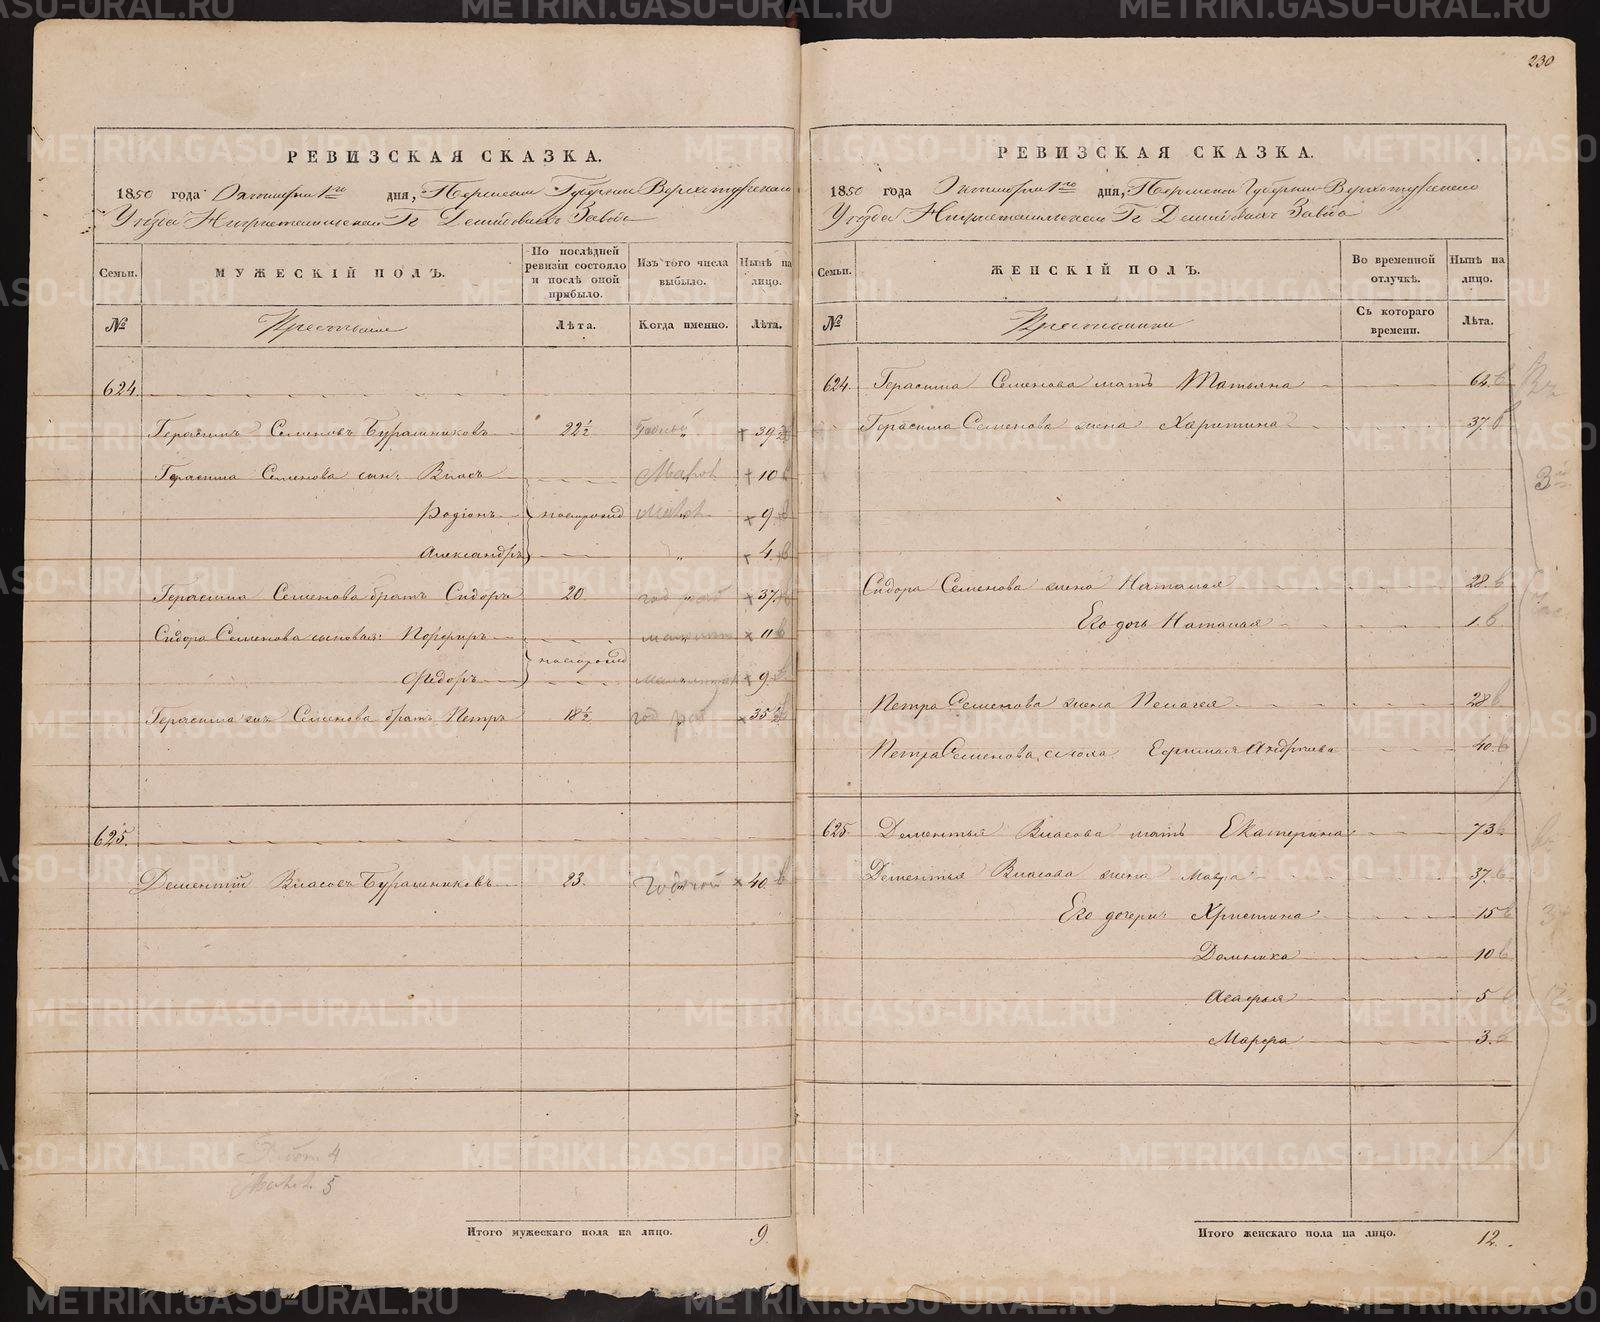 230
РЕВИЗСКАЯ СКАЗКА.
1850 года Октября 1го дня, Пермской Губернии Верхотурскаго
Уезда Нижнетагильскаго Гг Демидовыхъ Завода
Семьи. МУЖЕСКІЙ ПОЛЪ. По послѣдней ревизіи состояло и послѣ оной прибыло. Изъ того числа выбыло. Нынѣ на лицо.
№ Крестьяне Лѣта. Когда именно. Лѣта.
624.
Герасимъ Семеновъ Бурашниковъ 22½ Годной 39½
Герасима Семенова сын: Власъ 10
Родіонъ 9
Александръ 4.
Герасима Семенова братъ Сидоръ 20. 37.
Сидора Семенова сыновья: Порфиръ 11
Ѳедоръ 9.
Герасима Семенова братъ Петръ 18½ 35½
625.
Дементій Власовъ Бурашниковъ 23. Годной 40.
4
5
Итого мужескаго пола на лицо. 9.
РЕВИЗСКАЯ СКАЗКА.
1850 года Октября 1го дня, Пермской Губернии Верхотурскаго
Уезда Нижнетагильскаго Гг Демидовыхъ Завода
Семьи. ЖЕНСКІЙ ПОЛЪ. Во временной отлучкѣ. Нынѣ на лицо.
№ Крестьянки Съ котораго времени. Лѣта.
624. Герасима Семенова мать Татьяна 62.
Герасима Семенова жена Харитина 37.
Сидора Семенова жена Наталья 28.
Его дочь Наталья 1.
Петра Семенова жена Пелагея 28
Петра Семенова Ефимья Андреева 40.
625. Дементья Власова мать Екатерина 73
Дементья Власова жена Мавра 37.
Его дочери: Христина 15
Домника 10
Агафья 5
Марфа 3.
Итого женскаго пола на лицо. 12.
METRIKI.GASO-URAL.RU